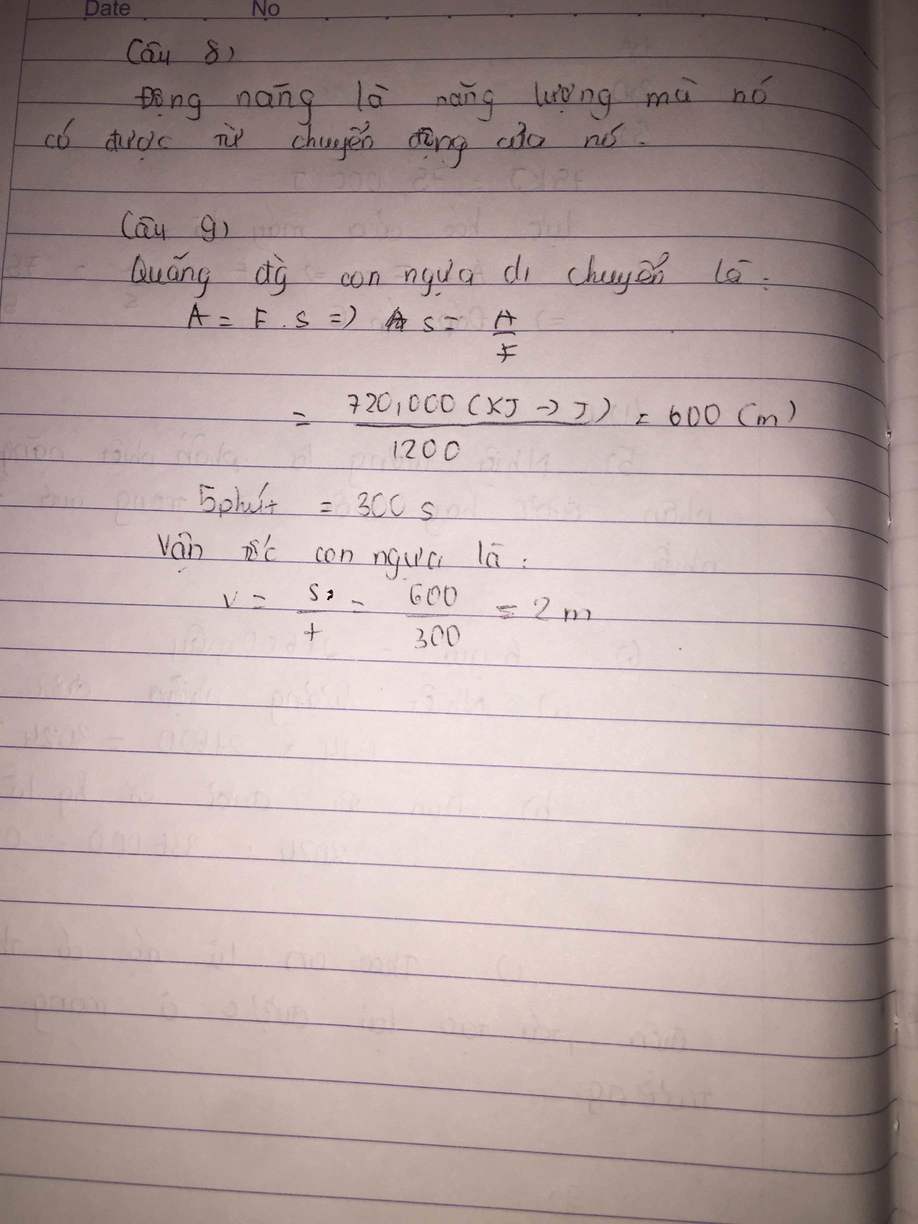 Date No
Câu 8)
Động năng là năng lượng mà nó
có được từ chuyển động của nó.
Câu 9)
Quãng đg con ngựa di chuyển là:
A = F . S => S = A/F
= 720,000 (KJ -> J) / 1200 = 600 (m)
5 phút = 300 s
Vận tốc con ngựa là:
v = s/t = 600/300 = 2 m